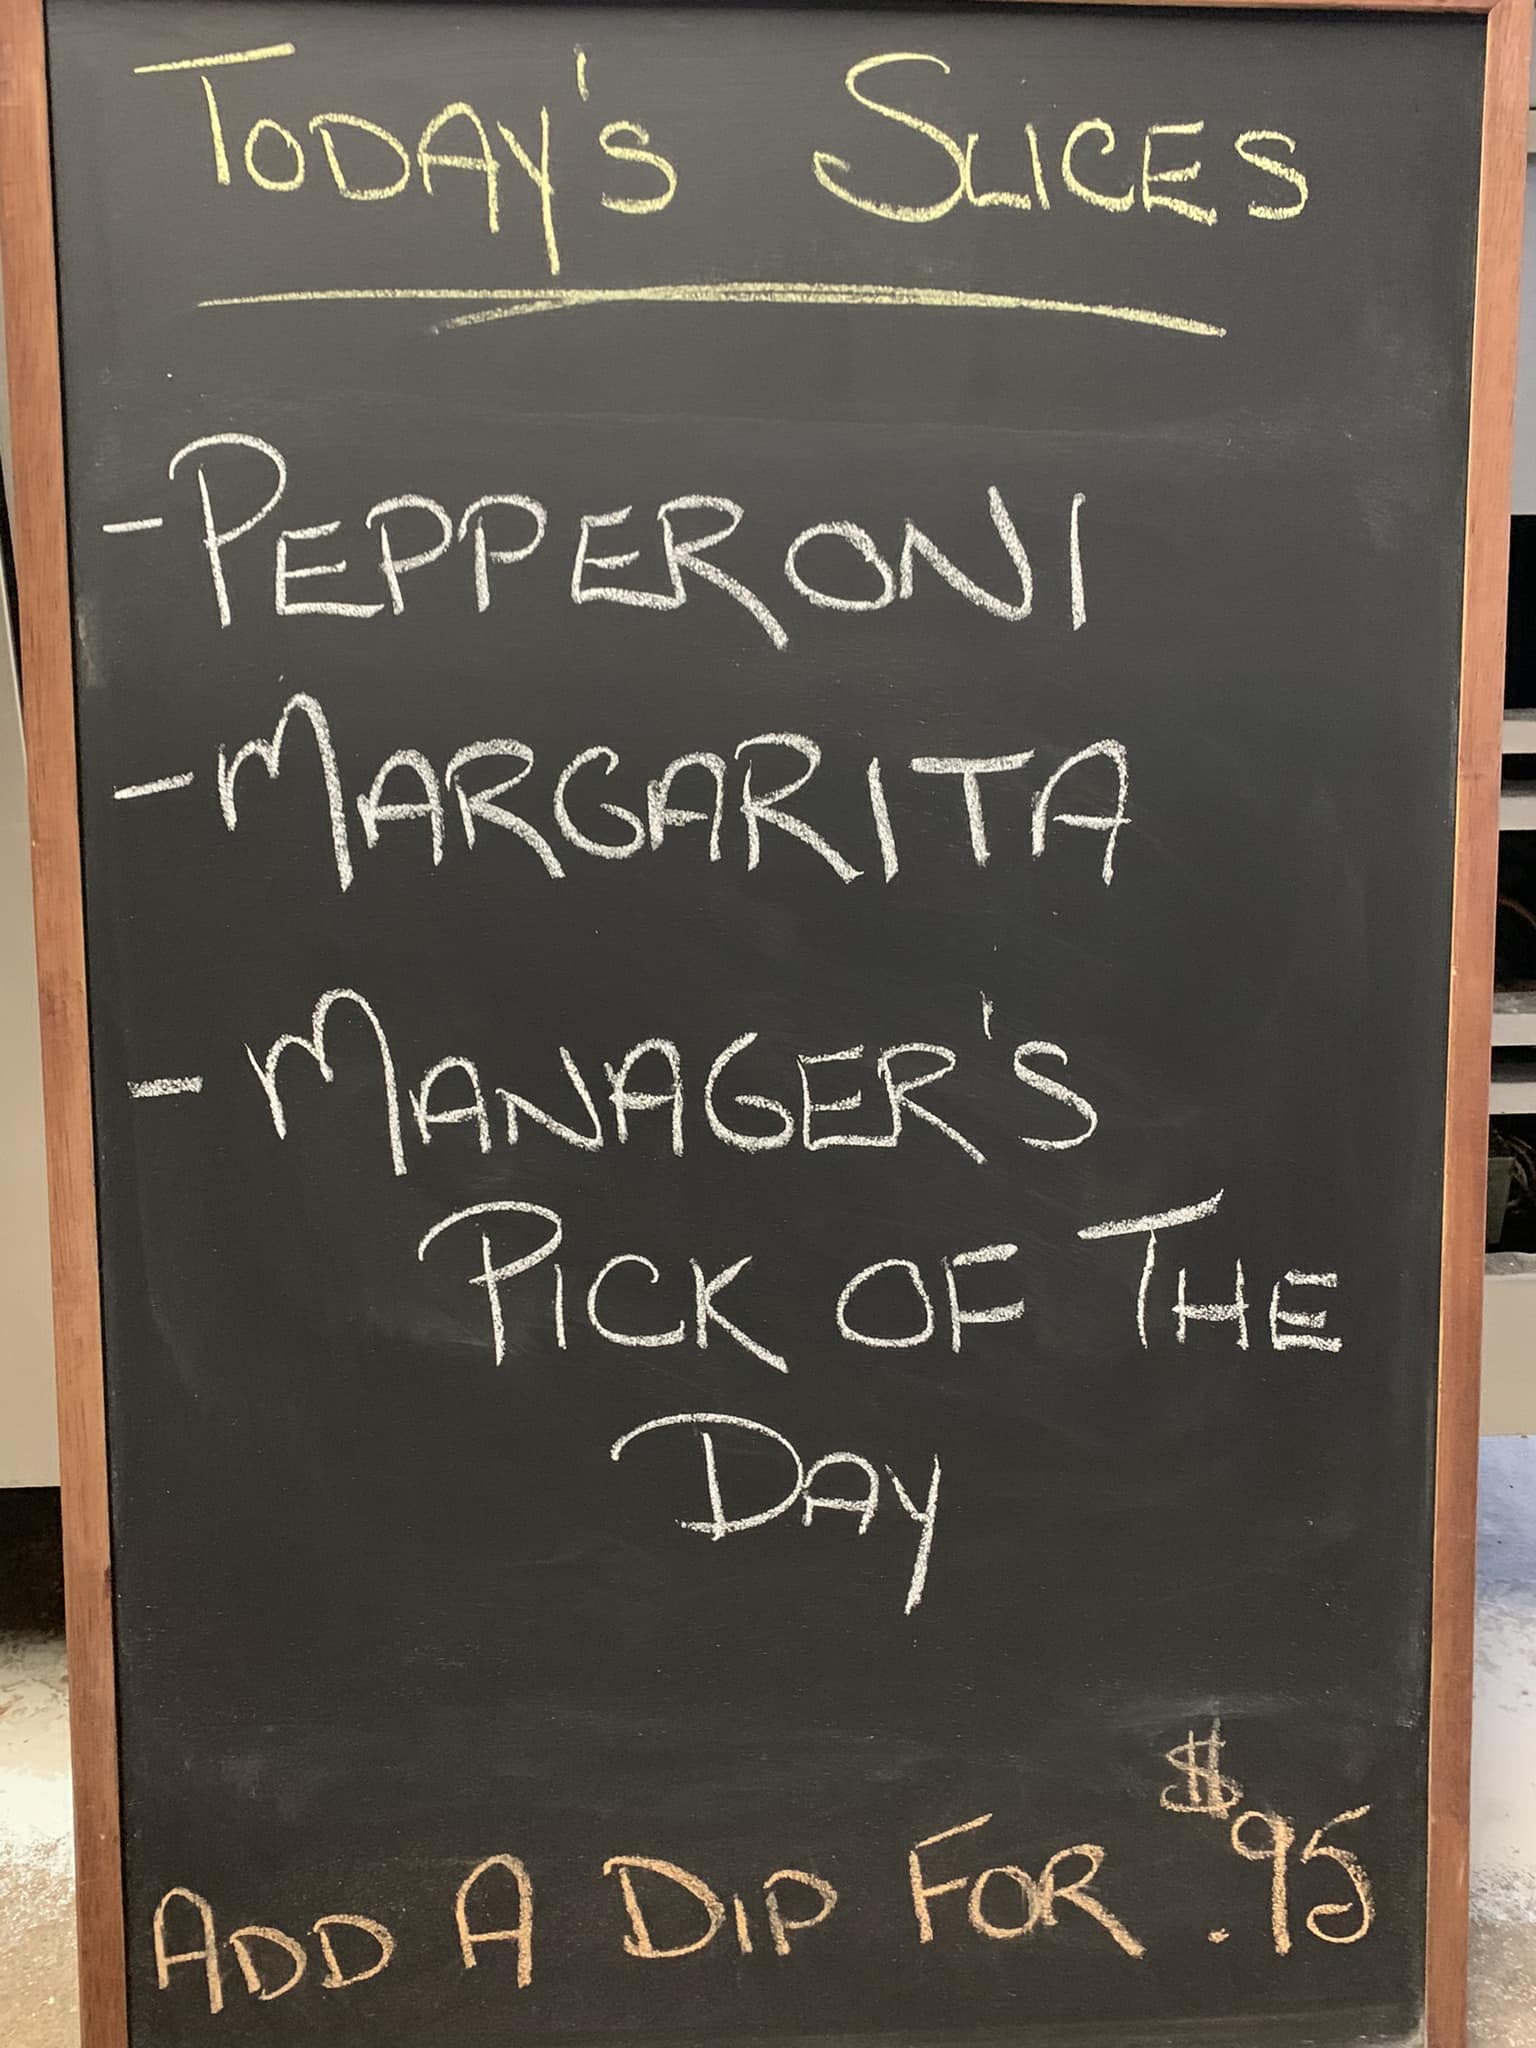 TODAY'S SLICES
- PEPPERONI
- MARGARITA
- MANAGER'S
PICK OF THE
DAY
ADD A DIP FOR $.95